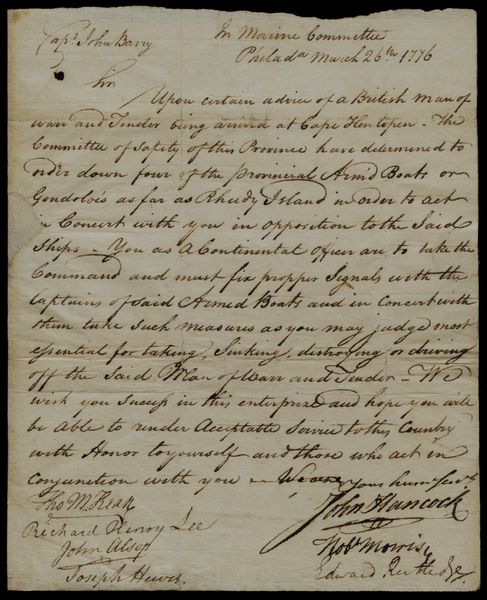 Capt. John Barry
In Marine Committee
Philada March 26th 1776
Sir
Upon certain advice of a British man of
warr and Tender being arrived at Cape Henlopen - The
Committee of Safety of this Province have determined to
order down four of the provincial Armd Boats or
Gondolos as far as Rheedy Island in order to act
in Concert with you in opposition to the Said
Ships - You as A Continental officer are to take the
Command and must fix propper Signals with the
Captains of Said Armed Boats and in Concert with
them take such measures as you may judge most
essential for taking, Sinking, destroying or driving
off the Said Man of Warr and Tender - We
wish you Sucess in this enterprize and hope you will
be Able to render Acceptable Service to this Country
with Honor to yourself and those who act in
Conjunction with you - We are
Your humSevts
Tho M:Kean
John Hancock
Richard Henry Lee
John Alsop
Robt Morris
Joseph Hewes
Edward Rutledge.